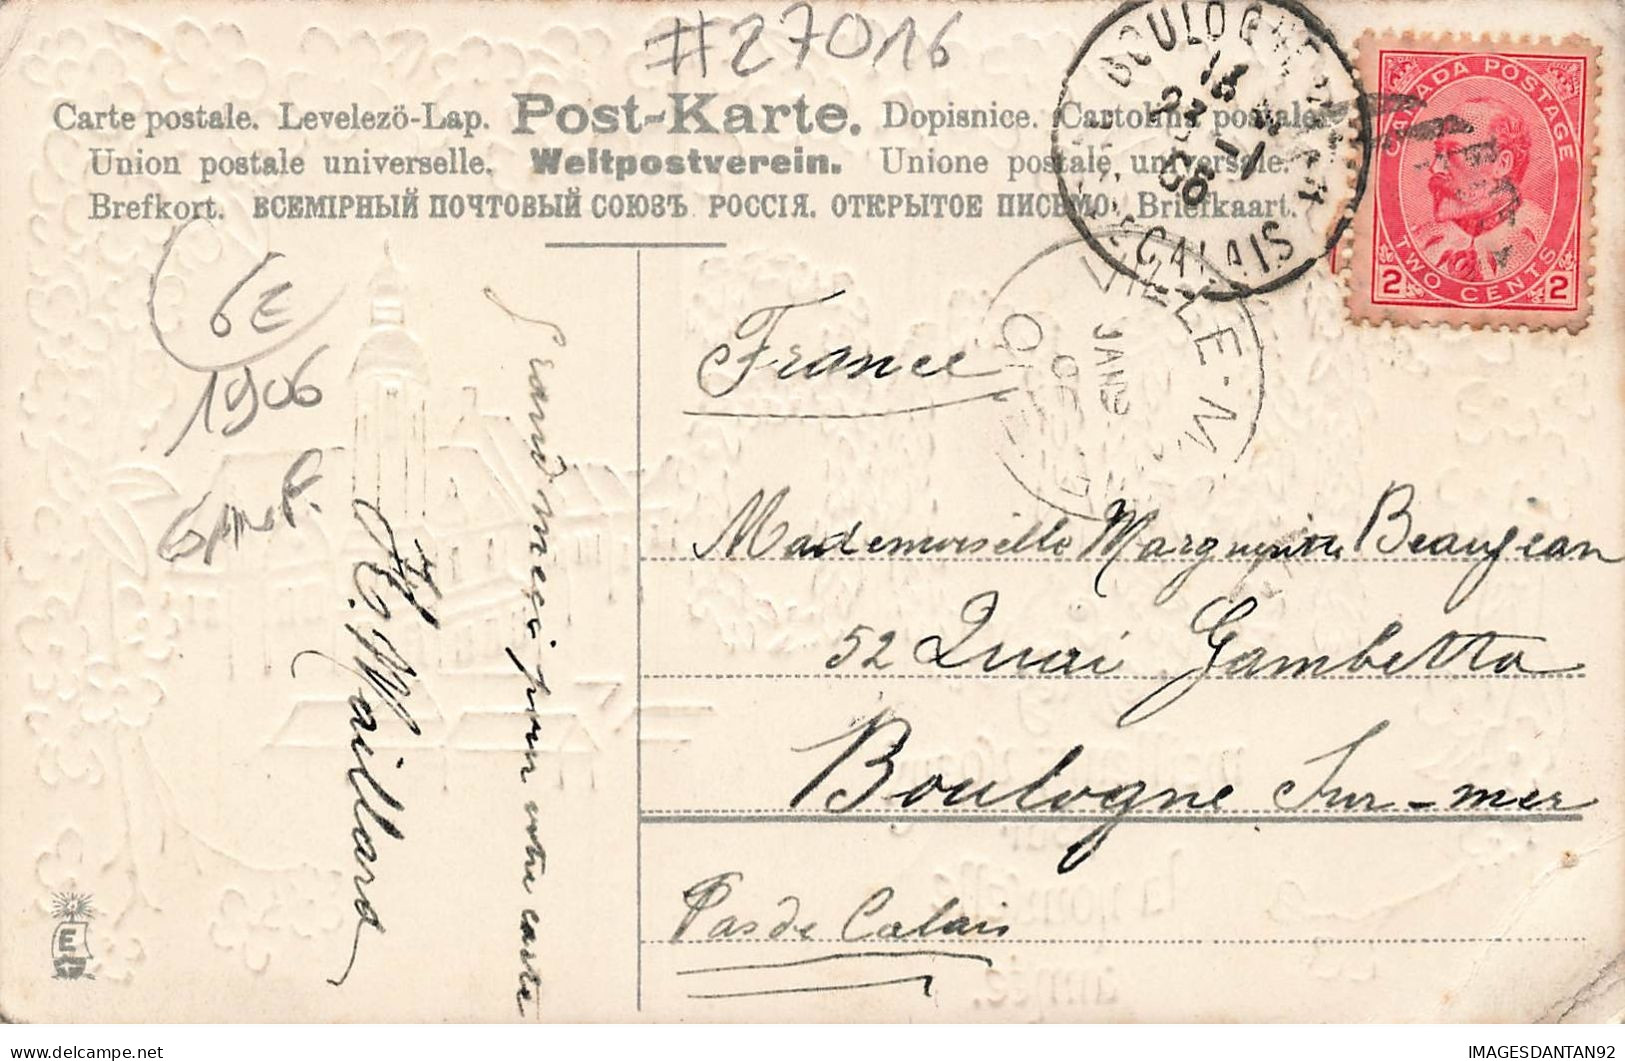 #27016
Carte postale. Levelező-Lap. Post-Karte. Dopisnice. Cartolina postale.
Union postale universelle. Weltpostverein. Unione postale universale.
Brefkort. ВСЕМІРНЫЙ ПОЧТОВЫЙ СОЮЗЪ РОССІЯ. ОТКРЫТОЕ ПИСЬМО. Briefkaart.
BOULOGNE
CALAIS
CANADA POSTAGE
2 TWO CENTS 2
6E
1906
Grand merci pour votre carte
H. Maillard
France
JAN 9
06
Mademoiselle Marguerite Beaujean
52 Quai Gambetta
Boulogne Sur-mer
Pas de Calais
E
meilleurs
pour
la nouvelle
année.
IMAGESDANTAN92